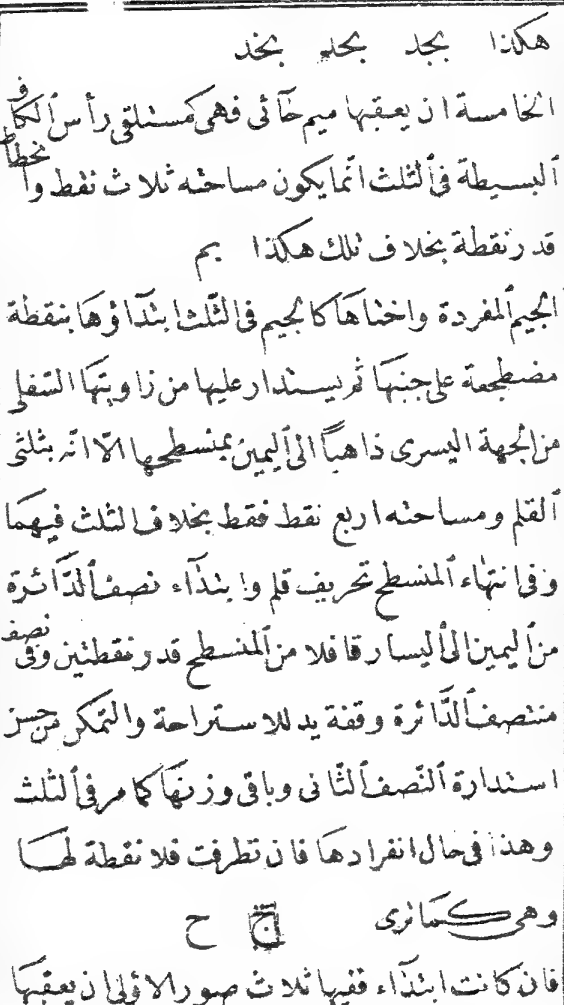 هكذا بجد بحد بخد
الخامسة ان يعقبها ميم خآئى فهى كمستلقى رأس الكاف
البسيطة فى الثلث انما يكون مساحته ثلاث نقط وانحطاط
قدر نقطة بخلاف تلك هكذا بم
الجيم المفردة واختاها كالجيم فى الثلث ابتدآؤها بنقطة
مضطجعة على جنبها ثم يستدار عليها من زاويتها السفلى
من الجهة اليسرى ذاهبا الى اليمين بمنسطحها الا انه بثلثى
القلم ومساحته اربع نقط فقط بخلاف الثلث فيهما
وفى انتهاء المنسطح تحريف قلم وابتدآء نصف الدآئرة
من اليمين الى اليسار قافلا من المنسطح قدر نقطتين وفى نصف
منتصف الدآئرة وقفة يد للاستراحة والتمكن من حسن
استدارة النصف الثانى وباقى وزنها كما مر فى الثلث
وهذا فى حال انفرادها فان تطرفت فلا نقطة لها
وهى كما ترى ج ح
فان كانت ابتدآء ففيها ثلاث صور الاولى ان يعقبها